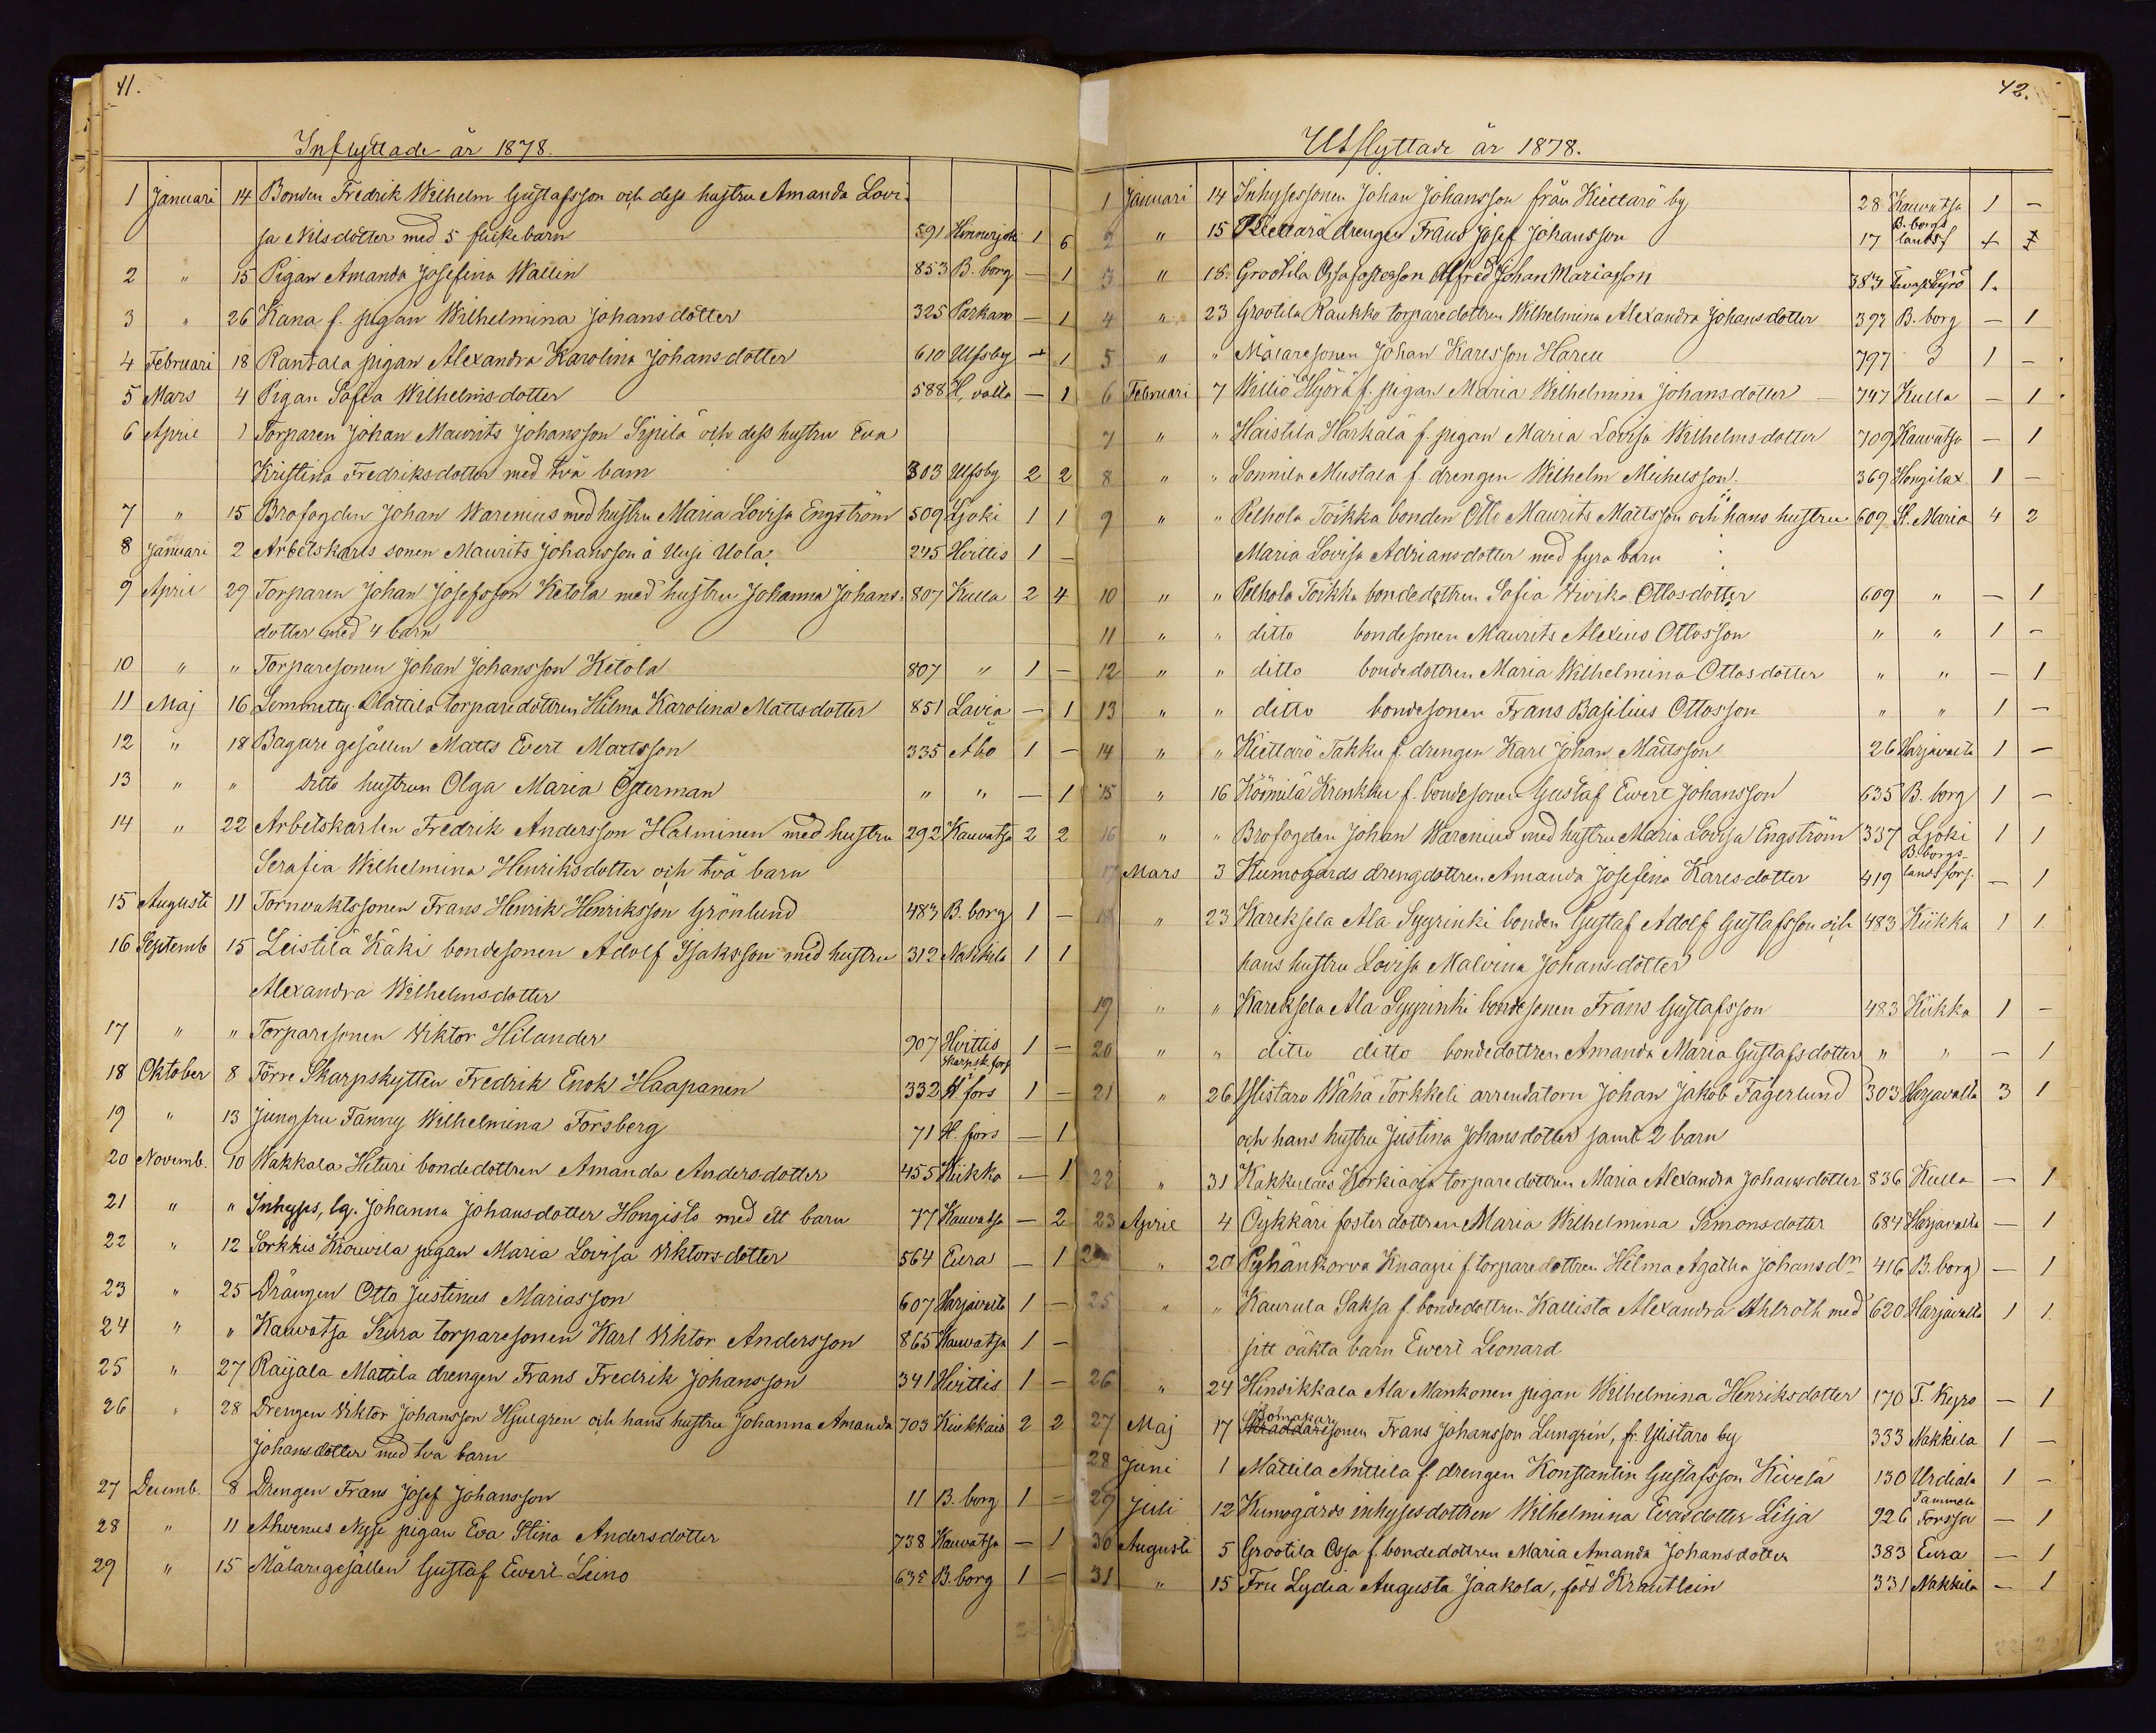 41.
Inflyttade år 1878.
1 Januari 14 Bonden Fredrik Wilhelm Gustafsson och dess hustru Amanda Lovi-
sa Nilsdotter med 5 flickebarn 591 Hinnerjoki 1 6
2 " 15 Pigan Amanda Josefina Wallin 853 B. borg — 1
3 " 26 Kana f. pigan Wilhelmina Johansdotter 325 Parkano — 1
4 Februari 18 Rantala pigan Alexandra Karolina Johansdotter 610 Ulfsby — 1
5 Mars 4 Pigan Sofia Wilhelmsdotter 588 H, valta — 1
6 April 1 Torparen Johan Maurits Johansson Sipilä och dess hustru Eva
Kristina Fredriksdotter med två barn 803 Ulfsby 2 2
7 " 15 Brofogden Johan Warenius med hustru Maria Lovisa Engström 509 Ljoki 1 1
8 Januari 2 Arbetskarls sonen Maurits Johansson å Uusi Uola 245 Hvittis 1 —
9 April 29 Torparen Johan Josefsson Ketola med hustru Johanna Johans- 807 Kulla 2 4
dotter med 4 barn
10 " " Torparesonen Johan Johansson Ketola 807 " 1 —
11 Maj 16 Lemmetty Mattila torparedottren Hilma Karolina Mattsdotter 851 Lavia — 1
12 " 18 Bagare gesällen Matts Evert Mattsson 335 Åbo 1 —
13 " " ditto hustrun Olga Maria Österman " " — 1
14 " 22 Arbetskarlen Fredrik Andersson Halminen med hustru 292 Kauvatsa 2 2
Serafia Wilhelmina Henriksdotter och två barn
15 Augusti 11 Tornvaktssonen Frans Henrik Henriksson Grönlund 483 B. borg 1 —
16 Septemb 15 Leistilä Käki bondesonen Adolf Isaksson med hustru 312 Nakkila 1 1
Alexandra Wilhelmsdotter
17 " " Torparesonen Viktor Hilander 907 Hvittis 1 —
18 Oktober 8 Förre Skarpskytten Fredrik Enok Haapanen 332 Skarpsk. förs i H fors 1 —
19 " 13 Jungfru Fanny Wilhelmina Forsberg 71 H. fors — 1
20 Novemb. 10 Wakkala Hituri bondedottren Amanda Andersdotter 455 Kiikka — 1
21 " " Inhyses, lg. Johanna Johansdotter Hongisto med ett barn 77 Kauvatsa — 2
22 " 12 Sorkkis Krouvila pigan Maria Lovisa Viktorsdotter 564 Eura — 1
23 " 25 Drängen Otto Justinus Mariasson 607 Harjavalta 1 —
24 " " Kauvatsa Skura torparesonen Karl Viktor Andersson 865 Kauvatsa 1 —
25 " 27 Raijala Mattila drengen Frans Fredrik Johansson 341 Hvittis 1 —
26 " 28 Drengen Viktor Johansson Hjulgren och hans hustru Johanna Amanda 703 Kiukkais 2 2
Johansdotter med två barn
27 Decemb. 8 Drengen Frans Josef Johansson 11 B. borg 1 —
28 " 11 Ahvenus Nyse pigan Eva Stina Andersdotter 738 Kauvatsa — 1
29 " 15 Målaregesällen Gustaf Evert Leino 635 B. borg 1 —
42.
Utflyttade år 1878.
1 Januari 14 Inhysessonen Johan Johansson från Kiettarö by 28 Kauvatsa 1 —
2 " 15 Kiettarö drengen Frans Josef Johansson 17 B. borgs landsf
3 " 18. Grootila Ossa fosterson Alfred Johan Mariasson 383 Tavastkyrö 1.
4 " 23 Grootila Raukko torparedottren Wilhelmina Alexandra Johansdotter 392 B. borg — 1
5 " " Målaresonen Johan Karlsson Hareu 797 1 —
6 Februari 7 Williö Hyörä f. pigan Maria Wilhelmina Johansdotter 747 Kulla — 1
7 " " Haistila Harkälä f. pigan Maria Lovisa Wilhelmsdotter 709 Kauvatsa — 1
8 " " Sonnila Mustala f. drengen Wilhelm Michelsson 369 Hongilax 1 —
9 " " Pelhola Töikkä bonden Otto Maurits Mattsson och hans hustru 609 St. Maria 4 2
Maria Lovisa Adriansdotter med fyra barn
10 " " Pelhola Töikkä bondedottren Sofia Vivika Ottosdotter 609 " — 1
11 " " ditto bondesonen Maurits Alexius Ottosson " " 1 —
12 " " ditto bondedottren Maria Wilhelmina Ottosdotter " " — 1
13 " " ditto bondesonen Frans Basilius Ottosson " " 1 —
14 " " Kiettarö Takku f. drengen Karl Johan Mattsson 26 Harjavalta 1 —
15 " 16 Köömilä Krenkku f. bondesonen Gustaf Evert Johansson 635 B. borg 1 —
16 " " Brofogden Johan Warenius med hustru Maria Lovisa Engström 337 Ljoki 1 1
17 Mars 3 Kumogårds drengdottren Amanda Josefina Karlsdotter 419 B. borgs landsförs. — 1
18 " 23 Kareksela Ala Syyrinki bonden Gustaf Adolf Gustafsson och 483 Kiikka 1 1
hans hustru Lovisa Malvina Johansdotter
19 " " Kareksela Ala Syyrinki bondesonen Frans Gustafsson 483 Kiikka 1 —
20 " " ditto ditto bondedottren Amanda Maria Gustafsdotter " " — 1
21 " 26 Ylistaro Wähä Torkkeli arrendatorn Johan Jakob Fagerlund 303 Harjavalta 3 1
och hans hustru Justina Johansdotter samt 2 barn
22 " 31 Kakkulais Korkiaoja torparedottren Maria Alexandra Johansdotter 836 Kulla — 1
23 April 4 Öykkäri fosterdottren Maria Wilhelmina Simonsdotter 684 Harjavalta — 1
24 " 20 Pyhänkorva Knaapi f torparedottren Hilma Agatha Johansdr 416 B. borg — 1
25 " " Kaurula Saksa f. bondedottren Kallista Alexandra Ahlroth med 620 Harjavalta 1 1
sitt oäkta barn Evert Leonard
26 " 24 Hinrikkala Ala Mankonen pigan Wilhelmina Henriksdotter 170 T. Kyro — 1
27 Maj 17 Skomakare Skräddaresonen Frans Johansson Lungrén, fr. Ylistaro by 333 Nakkila 1 —
28 Juni 1 Mattila Anttila f. drengen Konstantin Gustafsson Kivelä 130 Urdiala 1 —
29 Juli 12 Kumogårds inhysesdottren Wilhelmina Evasdotter Lilja 926 Tammela Forssa — 1
30 Augusti 5 Grootila Ossa f. bondedottren Maria Amanda Johansdotter 383 Eura — 1
31 " 15 Fru Lydia Augusta Jaakola, född Krautlein 331 Nakkila — 1